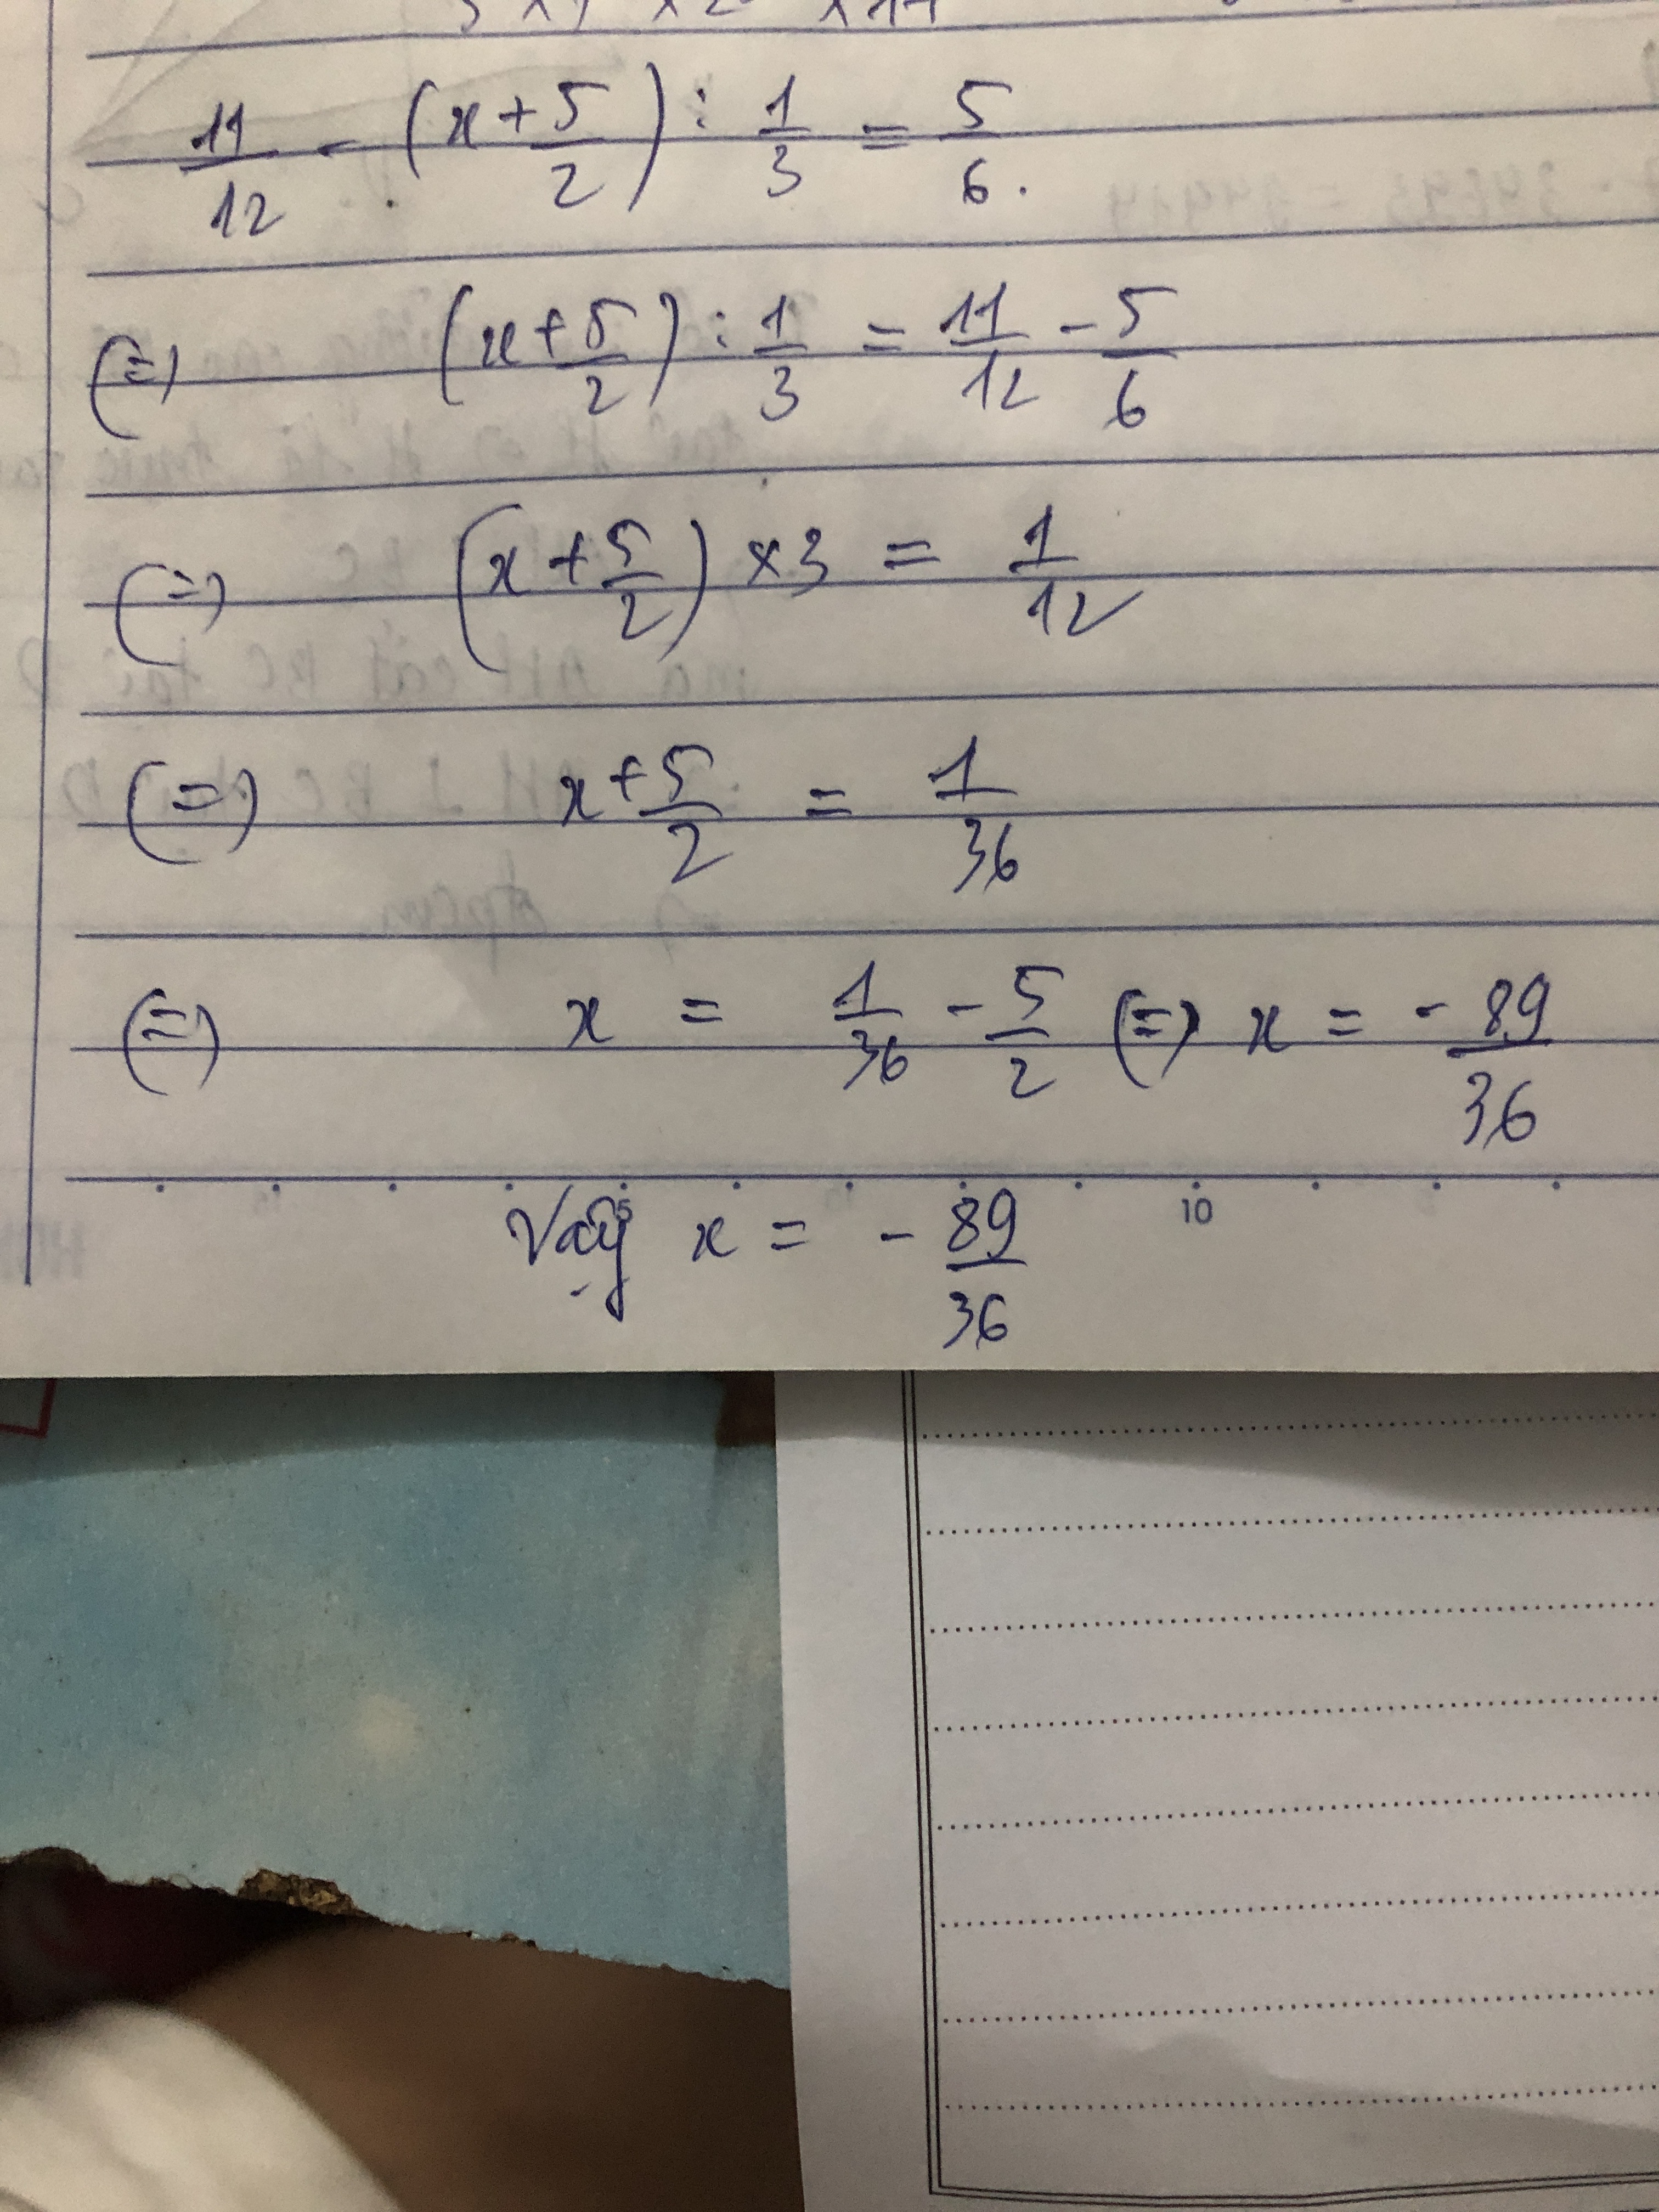 11/12 - (x + 5/2) : 1/3 = 5/6.
(=) (x + 5/2) : 1/3 = 11/12 - 5/6
(=) (x + 5/2) × 3 = 1/12
(=) x + 5/2 = 1/36
(=) x = 1/36 - 5/2 (=) x = - 89/36
5 10
Vậy x = - 89/36